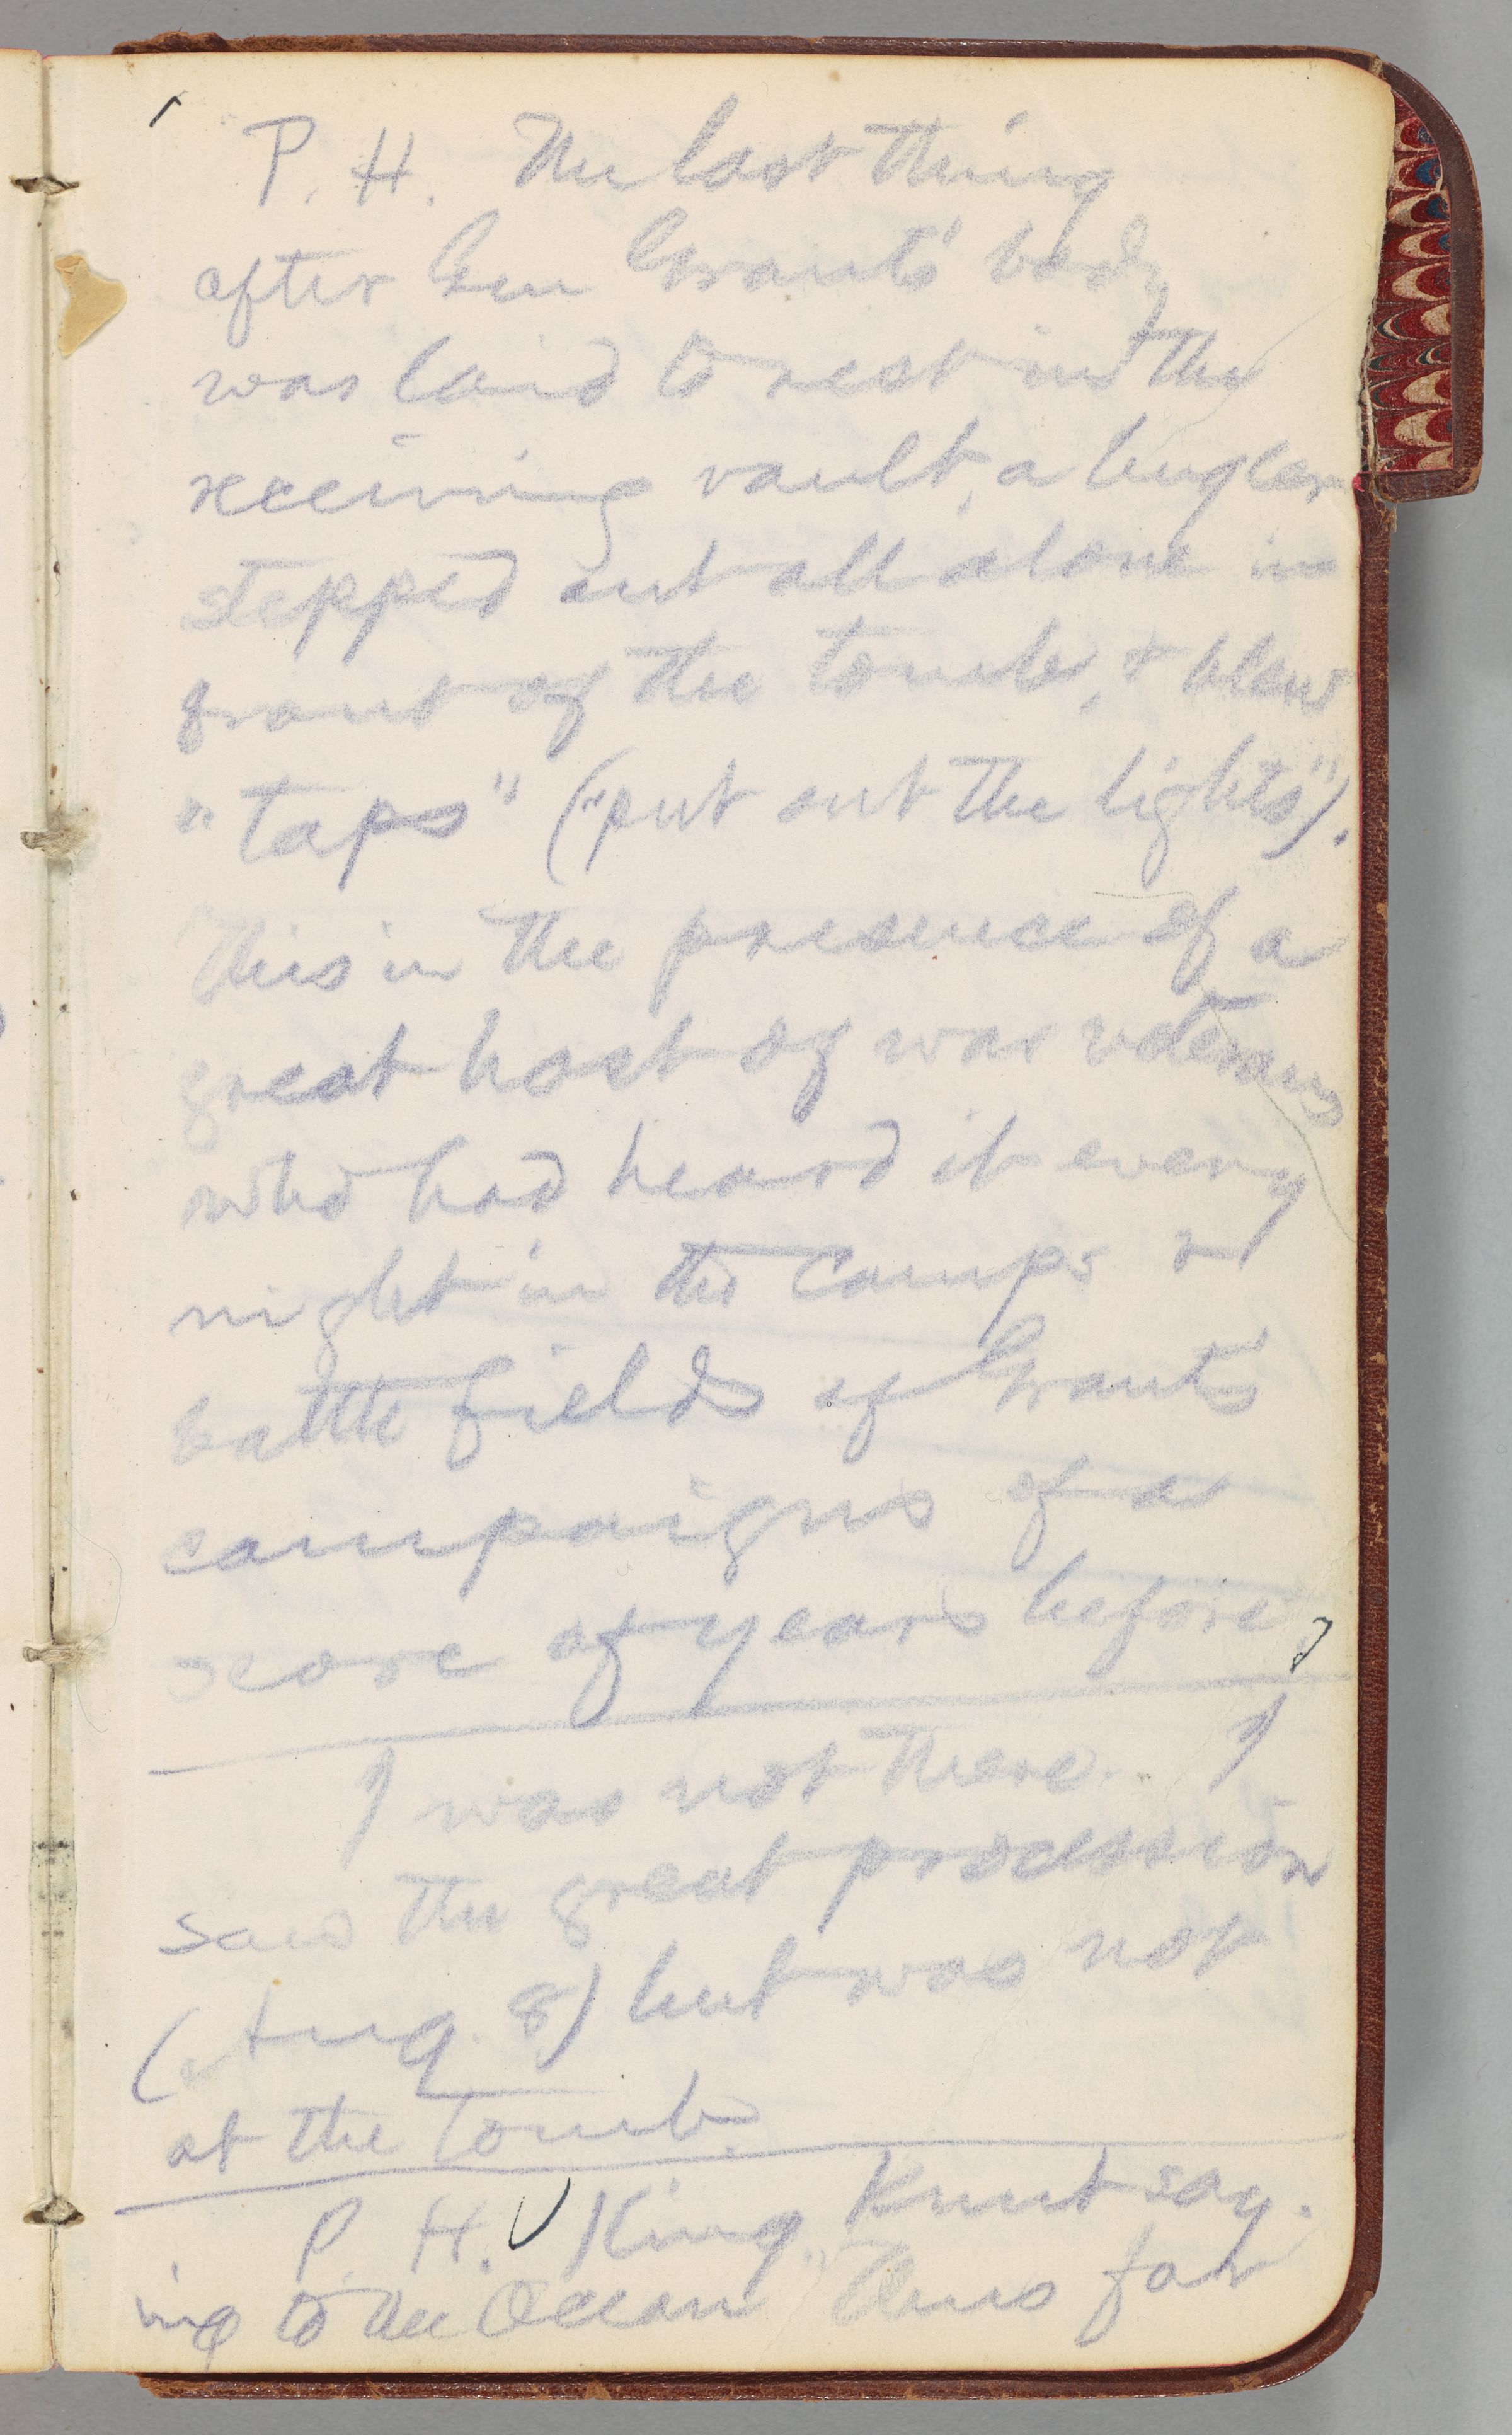 P. H. The last thing
after Gen Grant's body
was laid to rest in the
receiving vault, a bugler
stepped out all alone in
front of the tomb, & blew
"taps" ("put out the lights").
This in the presence of a
great host of war veterans
who had heard it every
night in the camps &
battle fields of Grant's
campaigns of a
score of years before,
I was not there. I
saw the great procession
(Aug. 8) but was not
at the tomb.
P. H. King Knut say-
ing to the Ocean "Thus far